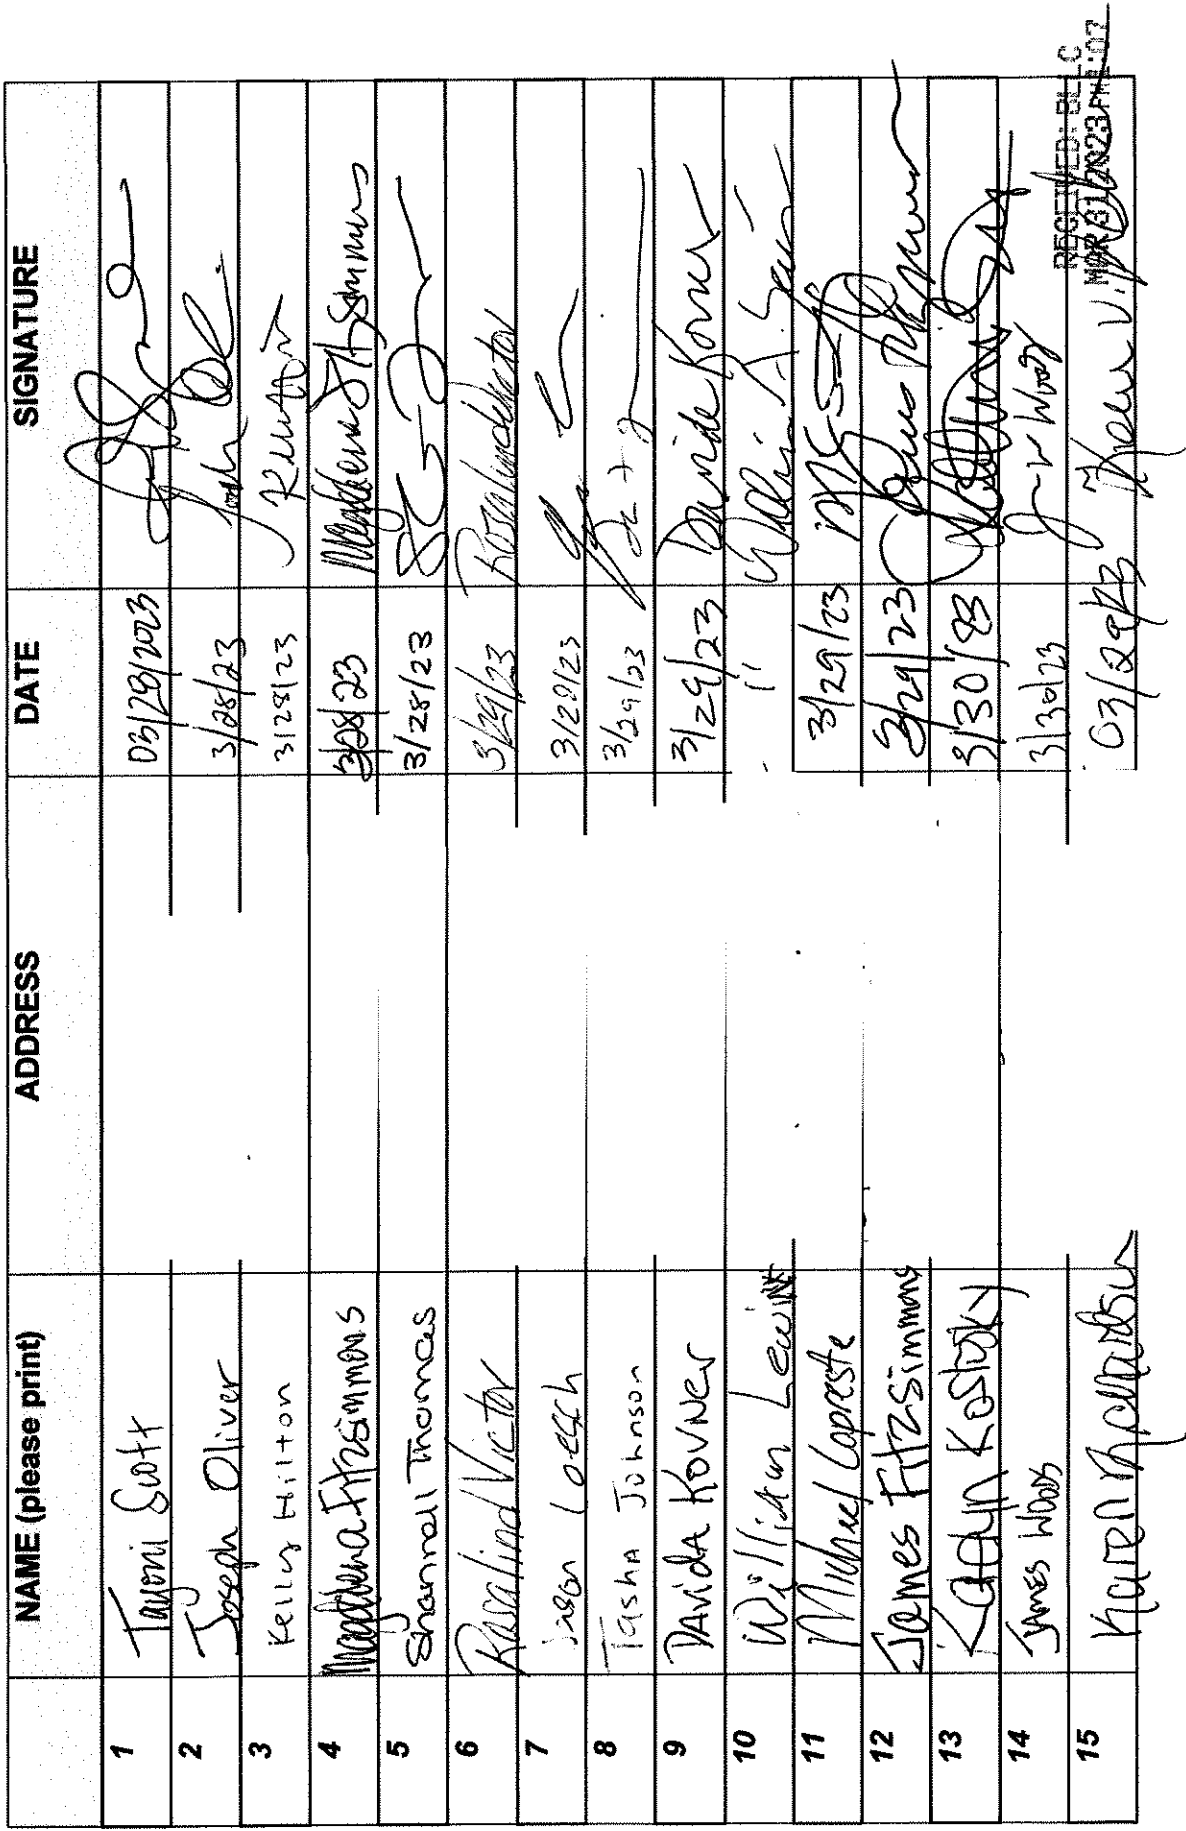 NAME (please print) ADDRESS DATE SIGNATURE
1 Tayoni Scott 03/28/2023
2 Joseph Oliver 3/28/23
3 Kelly Hilton 3/28/23
4 Magdalena Fitzsimmons 3/28/23 Magdalena Fitzsimmons
5 Shannall Thomas 3/28/23
6 Rosalind Victor 3/29/23 Rosalind Victor
7 Jason Loesch 3/29/23
8 Tasha Johnson 3/29/23
9 DAVIDA KOVNER 3/29/23 Davida Kovner
10 William Lewink " William
11 Michael Lopreste 3/29/23
12 James Fitzsimmons 3/29/23 James
13 Kostusky 3/30/23
14 JAMES WOODS 3/30/23 Woods
15 Karen Richardson 03/29/23 Karen V.
RECEIVED: BLLC
MAR 31 2023 PM1:07